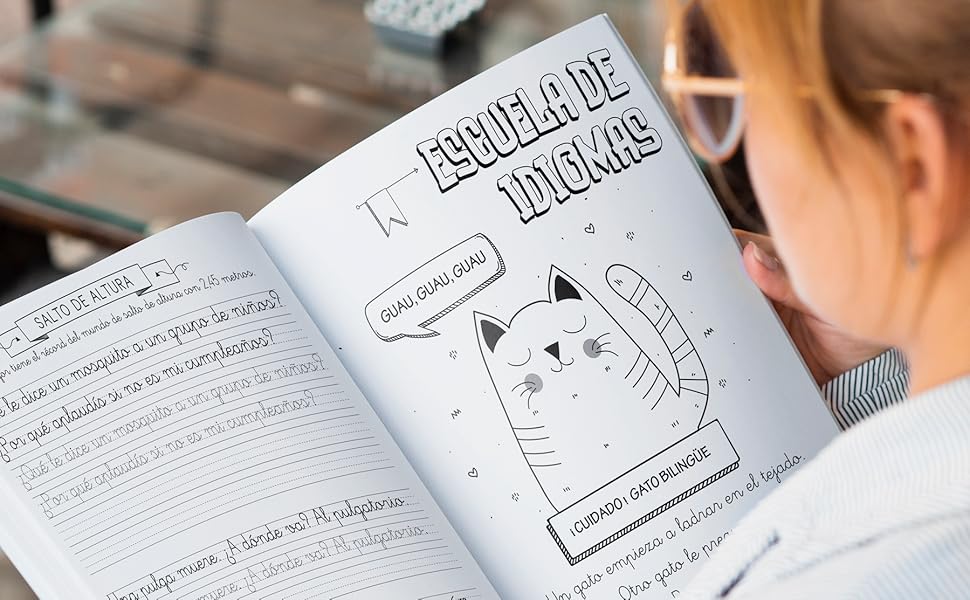 SALTO DE ALTURA
tiene el récord del mundo de salto de altura con 2,45 metros.
le dice un mosquito a un grupo de niños?
¿Por qué aplaudís si no es mi cumpleaños?
¿Qué le dice un mosquito a un grupo de niños?
¿Por qué aplaudís si no es mi cumpleaños?
Una pulga muere. ¿A dónde va? Al pulgatorio.
pulga muere. ¿A dónde va? Al pulgatorio.
ESCUELA DE
IDIOMAS
GUAU, GUAU, GUAU
¡CUIDADO! GATO BILINGÜE
Un gato empieza a ladrar en el tejado.
Otro gato le